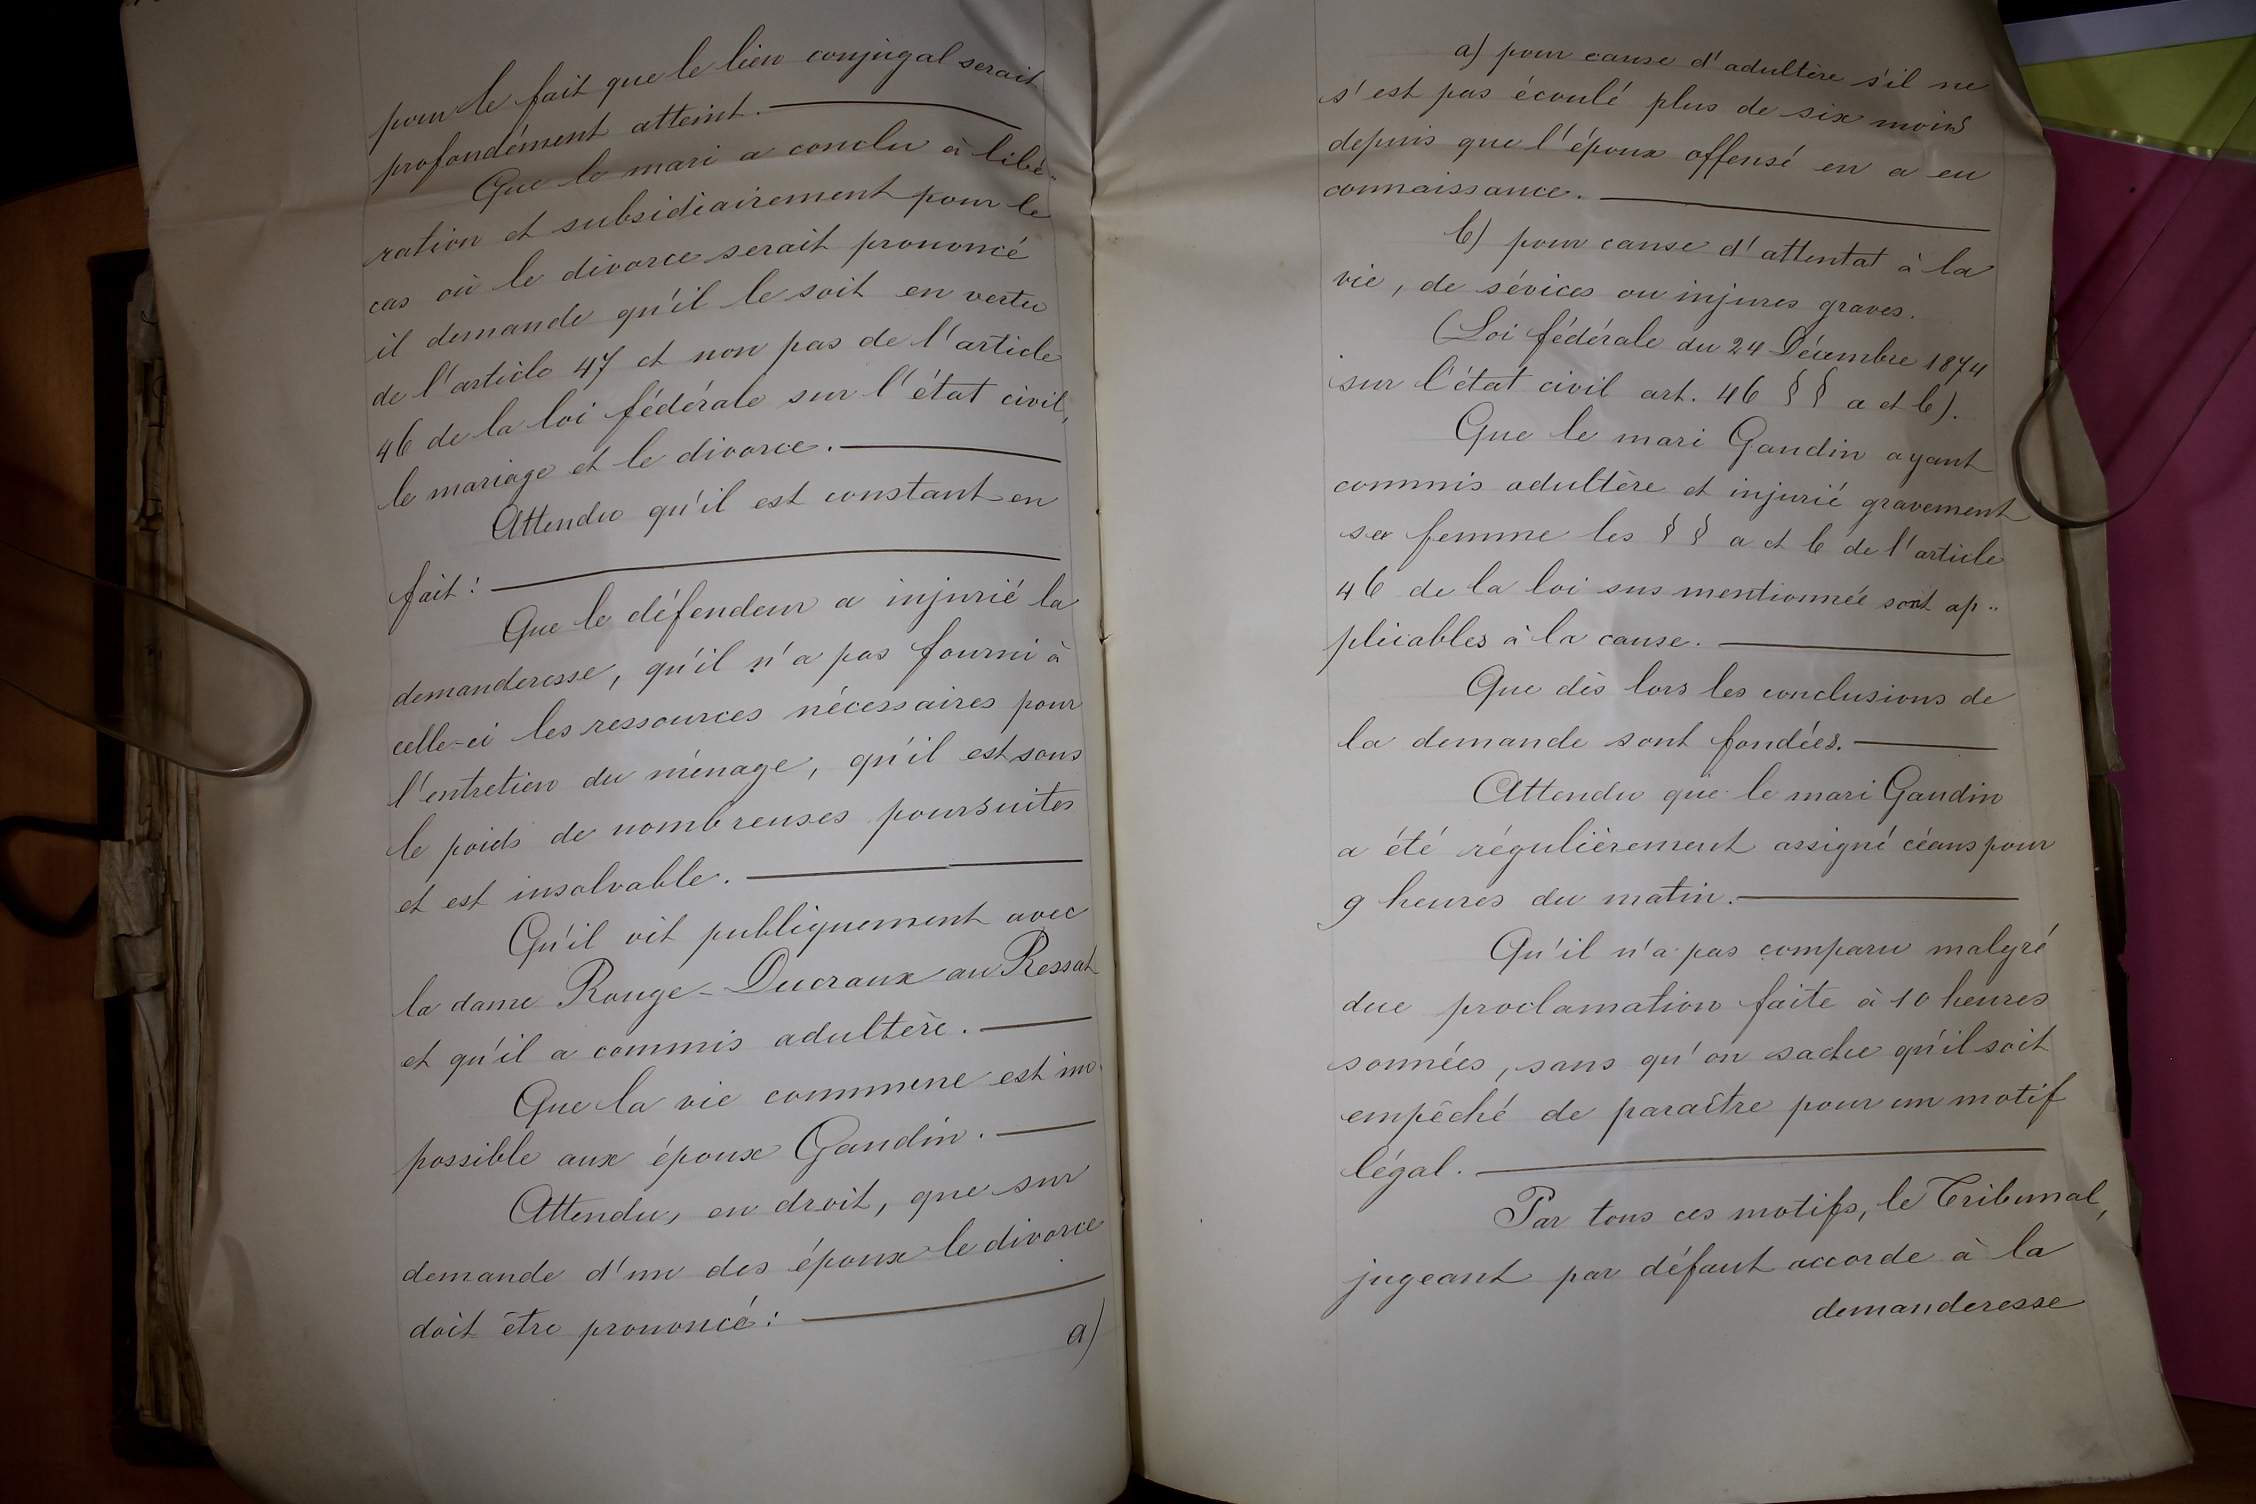 pour le fait que le lien conjugal serait
profondément atteint.
Que le mari a conclu à libé-
ration et subsidiairement pour le
cas où le divorce serait prononcé
il demande qu'il le soit en vertu
de l'article 47 et non pas de l'article
46 de la loi fédérale sur l'état civil,
le mariage et le divorce.
Attendu qu'il est constant en
fait :
Que le défendeur a injurié la
demanderesse, qu'il n'a pas fourni à
celle-ci les ressources nécessaires pour
l'entretien du ménage, qu'il est sous
le poids de nombreuses poursuites
et est insolvable.
Qu'il vit publiquement avec
la dame Rouge-Ducraux au Ressat
et qu'il a commis adultère.
Que la vie commune est im-
possible aux époux Gaudin.
Attendu, en droit, que sur
demande d'un des époux le divorce
doit être prononcé :
a)
a) pour cause d'adultère s'il ne
s'est pas écoulé plus de six mois
depuis que l'époux offensé en a eu
connaissance.
b) pour cause d'attentat à la
vie, de sévices ou injures graves.
(Loi fédérale du 24 Décembre 1874
sur l'état civil art. 46 § § a et b).
Que le mari Gaudin ayant
commis adultère et injurié gravement
sa femme les § § a et b de l'article
46 de la loi sus mentionnée sont ap-
plicables à la cause.
Que dès lors les conclusions de
la demande sont fondées.
Attendu que le mari Gaudin
a été régulièrement assigné céans pour
9 heures du matin.
Qu'il n'a pas comparu malgré
due proclamation faite à 10 heures
sonnées, sans qu'on sache qu'il soit
empêché de paraître pour un motif
légal.
Par tous ces motifs, le Tribunal,
jugeant par défaut accorde à la
demanderesse